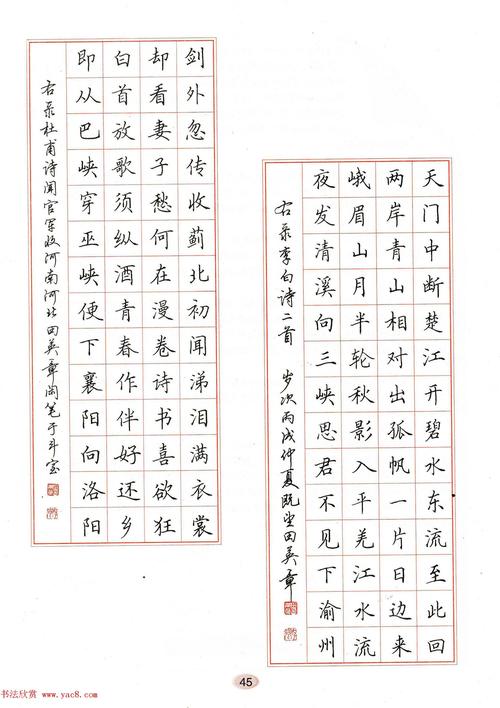 天门中断楚江开碧水东流至此回
两岸青山相对出孤帆一片日边来
峨眉山月半轮秋影入平羌江水流
夜发清溪向三峡思君不见下渝州
右录李白诗二首 岁次丙戌仲夏既望田英章
剑外忽传收蓟北初闻涕泪满衣裳
却看妻子愁何在漫卷诗书喜欲狂
白首放歌须纵酒青春作伴好还乡
即从巴峡穿巫峡便下襄阳向洛阳
右录杜甫诗闻官军收河南河北田英章阁笔于斗室
45
书法欣赏 www.yac8.com